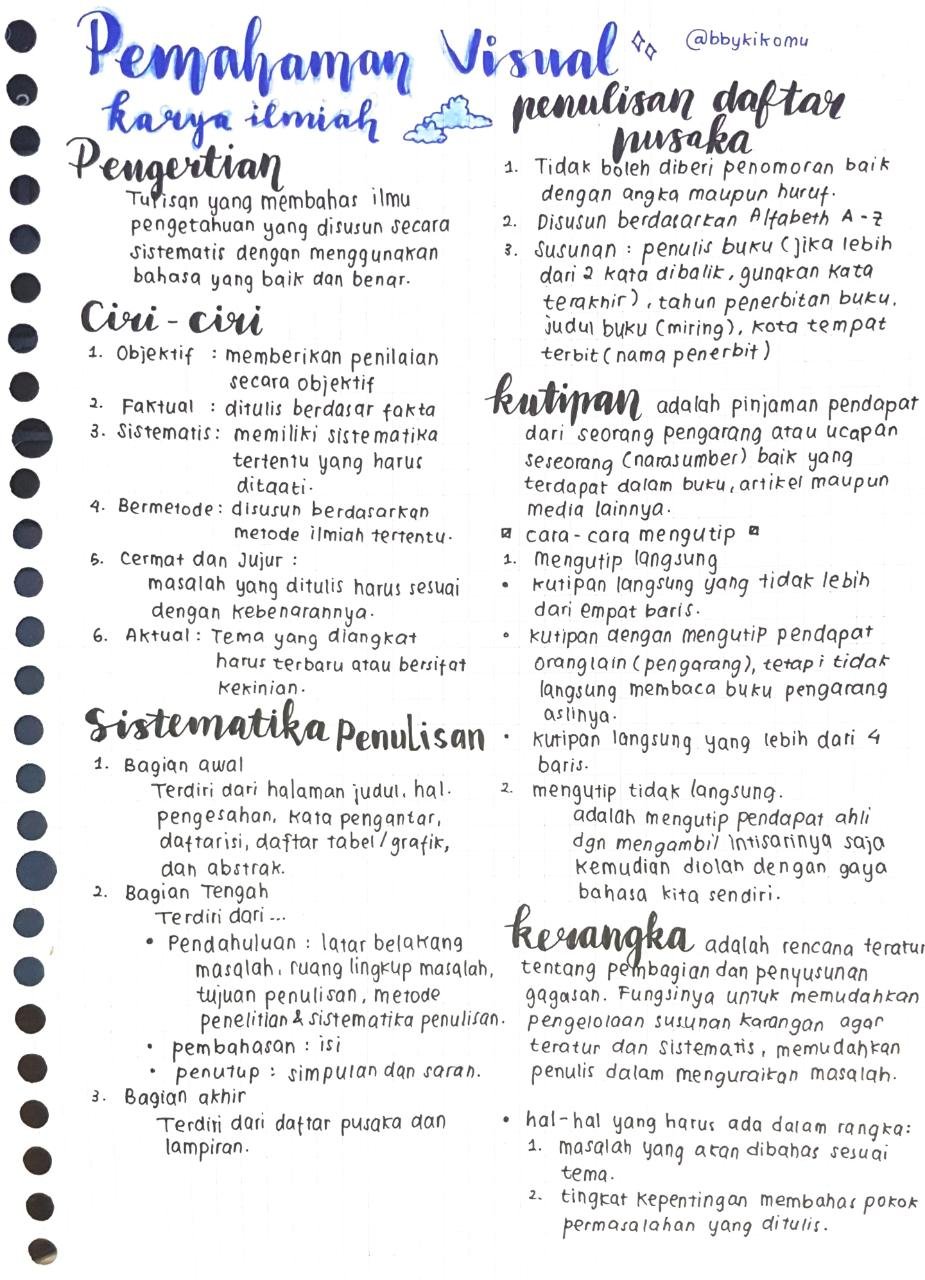 Pemahaman Visual
@bbykikomu
karya ilmiah
Pengertian
Tulisan yang membahas ilmu
pengetahuan yang disusun secara
sistematis dengan menggunakan
bahasa yang baik dan benar.
Ciri - ciri
1. Objektif : memberikan penilaian
secara objektif
2. Faktual : ditulis berdasar fakta
3. Sistematis : memiliki sistematika
tertentu yang harus
ditaati.
4. Bermetode : disusun berdasarkan
metode ilmiah tertentu.
5. Cermat dan Jujur :
masalah yang ditulis harus sesuai
dengan kebenarannya.
6. Aktual : Tema yang diangkat
harus terbaru atau bersifat
kekinian.
Sistematika Penulisan
1. Bagian awal
Terdiri dari halaman judul, hal.
pengesahan, kata pengantar,
daftarisi, daftar tabel/grafik,
dan abstrak.
2. Bagian Tengah
Terdiri dari...
• Pendahuluan : latar belakang
masalah, ruang lingkup masalah,
tujuan penulisan, metode
penelitian & sistematika penulisan.
• pembahasan : isi
• penutup : simpulan dan saran.
3. Bagian akhir
Terdiri dari daftar pusaka dan
lampiran.
penulisan daftar
pusaka
1. Tidak boleh diberi penomoran baik
dengan angka maupun huruf.
2. Disusun berdasarkan Alfabeth A - Z
3. Susunan : penulis buku (jika lebih
dari 2 kata dibalik, gunakan kata
terakhir), tahun penerbitan buku,
judul buku (miring), kota tempat
terbit (nama penerbit)
kutipan adalah pinjaman pendapat
dari seorang pengarang atau ucapan
seseorang (narasumber) baik yang
terdapat dalam buku, artikel maupun
media lainnya.
cara - cara mengutip
1. Mengutip langsung
• kutipan langsung yang tidak lebih
dari empat baris.
• kutipan dengan mengutip pendapat
orang lain (pengarang), tetapi tidak
langsung membaca buku pengarang
aslinya.
• kutipan langsung yang lebih dari 4
baris.
2. mengutip tidak langsung.
adalah mengutip pendapat ahli
dgn mengambil intisarinya saja
kemudian diolah dengan gaya
bahasa kita sendiri.
kerangka adalah rencana teratur
tentang pembagian dan penyusunan
gagasan. Fungsinya untuk memudahkan
pengelolaan susunan karangan agar
teratur dan sistematis, memudahkan
penulis dalam menguraikan masalah.
• hal-hal yang harus ada dalam rangka:
1. masalah yang akan dibahas sesuai
tema.
2. tingkat kepentingan membahas pokok
permasalahan yang ditulis.